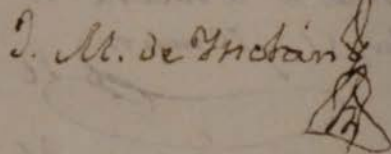 J. M. de Ynclán